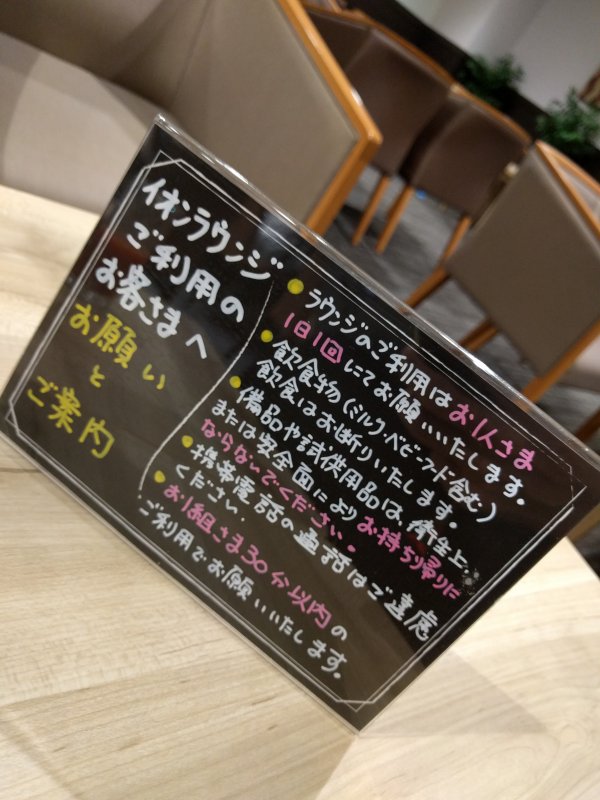 イオンラウンジ
ご利用の
お客さまへ
お願い
と
ご案内
ラウンジのご利用はお1人さま
1日1回にてお願いいたします。
飲食物(ミルク・ベビーフード含む)
飲食はお断りいたします。
備品や試供用品は、衛生上、
または安全面によりお持ち帰りに
ならないでください。
携帯電話の通話はご遠慮
ください。
お1組さま30分以内の
ご利用でお願いいたします。